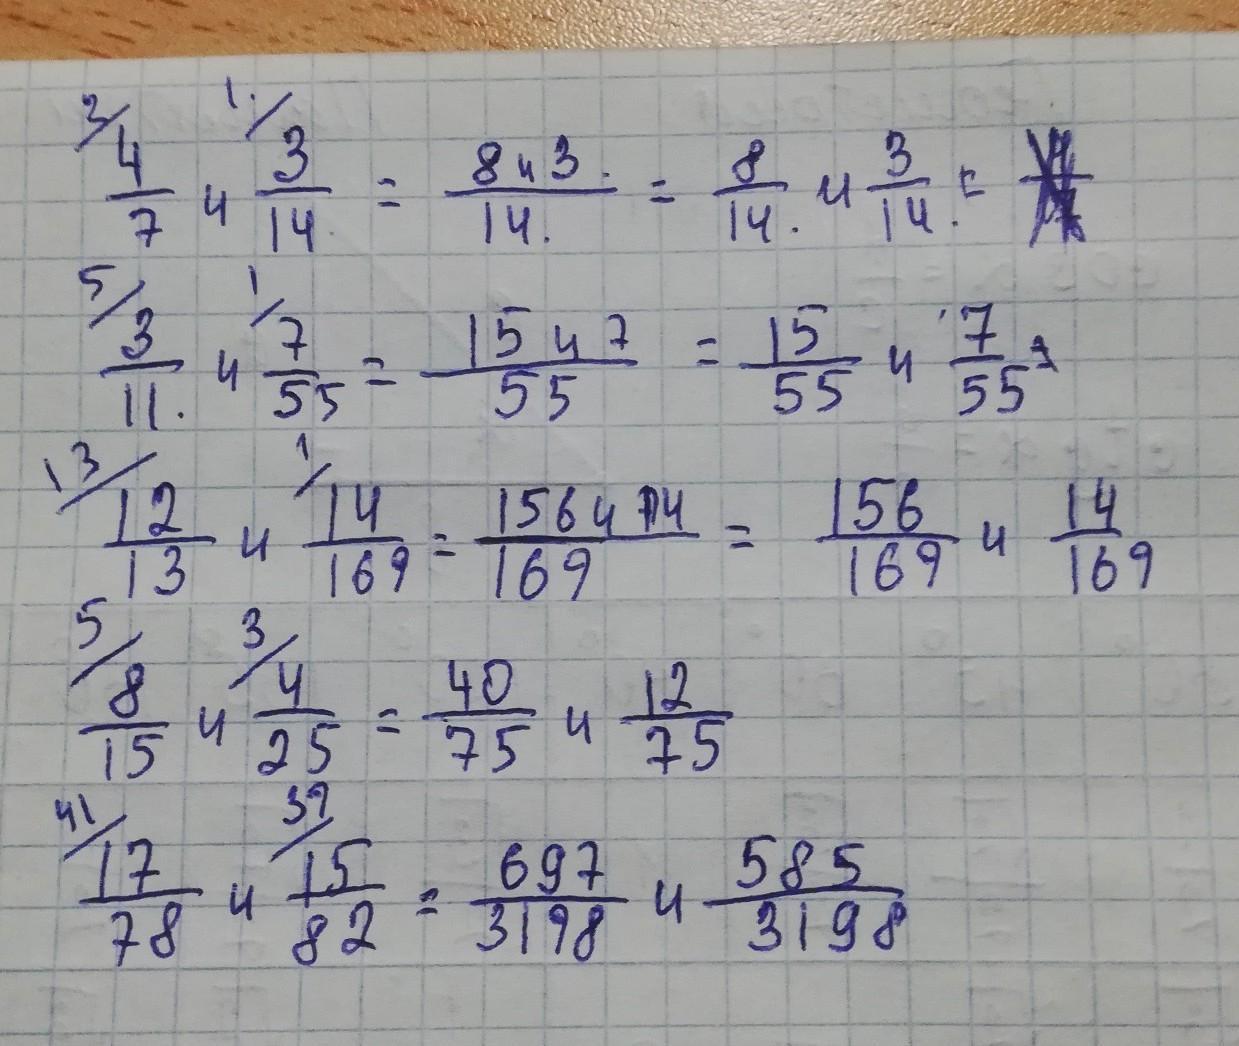 2/ 4/7 и 1/ 3/14 = 8 и 3/14 = 8/14 и 3/14 =
5/ 3/11 и 1/ 7/55 = 15 и 7/55 = 15/55 и 7/55
13/ 12/13 и 1/ 14/169 = 156 и 14/169 = 156/169 и 14/169
5/ 8/15 и 3/ 4/25 = 40/75 и 12/75
41/ 17/78 и 39/ 15/82 = 697/3198 и 585/3198